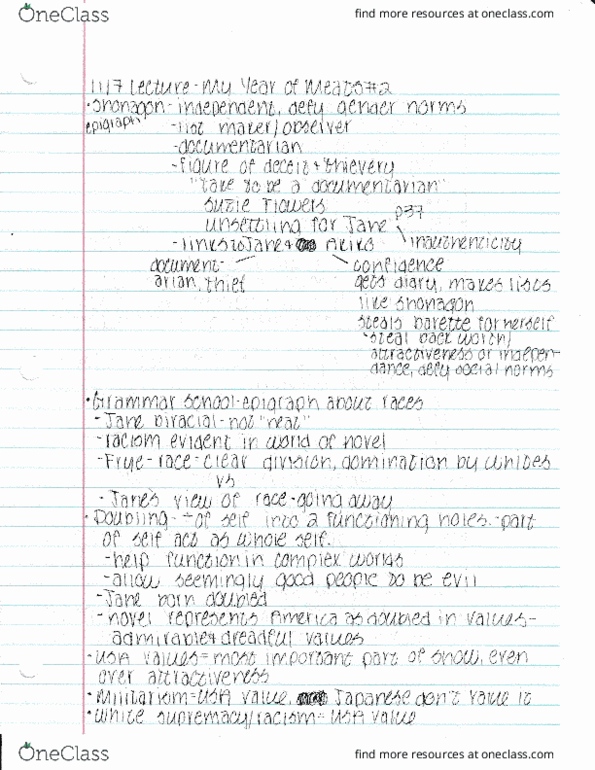 OneClass
find more resources at oneclass.com
11/7 Lecture - My Year of Meats #2
• Shonagon - independent, defy gender norms
epigraph - list maker/observer
- documentarian
- figure of deceit + thievery
"take to be a documentarian"
Suzie Flowers
unsettling for Jane p37
- links to Jane + Akiko inauthenticity
document- confidence
arian, thief gets diary, makes lists
like Shonagon
steals barette for herself
*steal back worth/
attractiveness or indepen-
dance, defy social norms
• Grammar school - epigraph about races
- Jane biracial - not "neat"
- racism evident in world of novel
- Frye - race - clear division, domination by whites
vs
- Jane's view of race - going away
• Doubling - ÷ of self into 2 functioning wholes - part
of self act as whole self.
- help function in complex worlds
- allow seemingly good people to be evil
- Jane born doubled
- novel represents America as doubled in values -
admirable + dreadful values
• USA values = most important part of show, even
over attractiveness
• Militarism = USA value, Japanese don't value it
• White supremacy/racism = USA value
OneClass
find more resources at oneclass.com